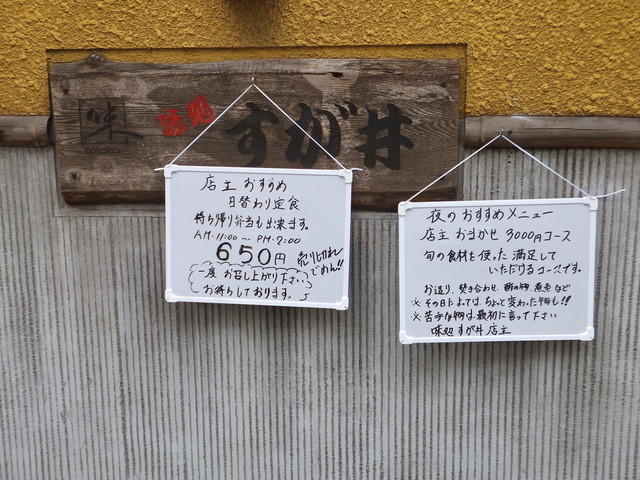 味
味処
すが井
店主おすすめ
日替わり定食
持ち帰り弁当も出来ます。
AM.11:00 ～ PM.2:00
650円
売り切れ
ごめん!!
一度お召し上がり下さい
お待ちしております。
夜のおすすめメニュー
店主おまかせ 3000円コース
旬の食材を使った満足して
いただけるコースです。
お造り、焚き合わせ、酢の物、煮魚など
※その日によっては、ちょっと変わった物も!!
※苦手な物は最初に言って下さい
味処すが井店主